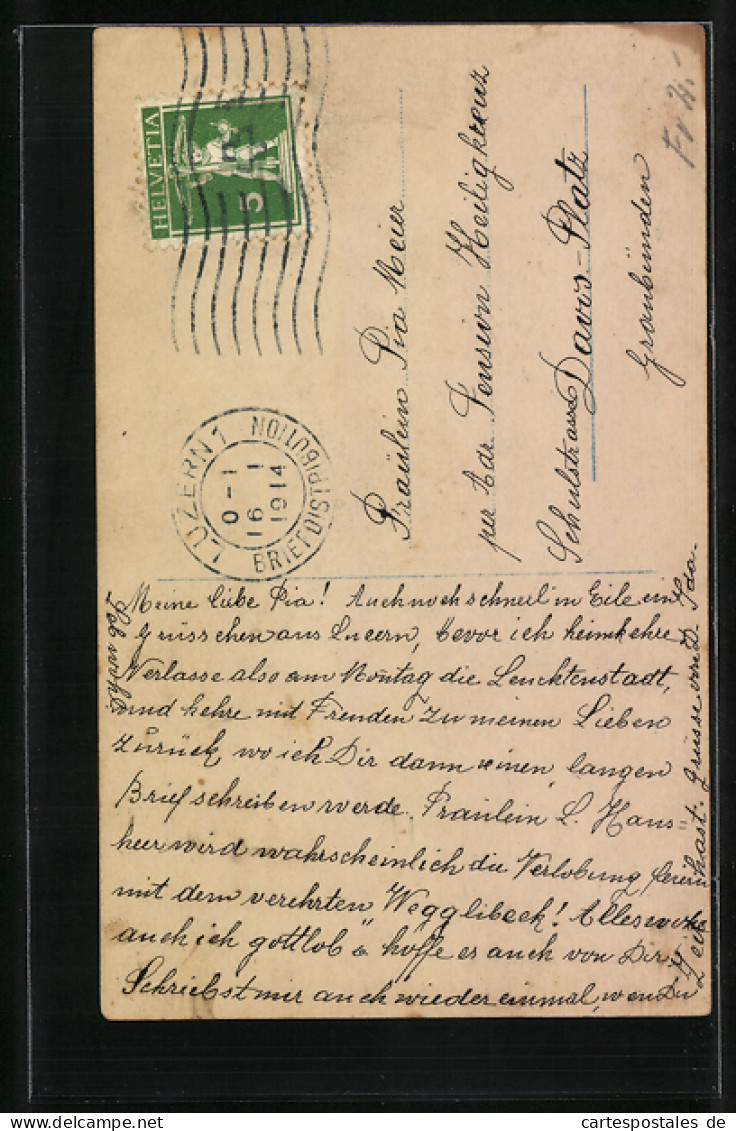 HELVETIA
5
LUZERN 1
BRIEFDISTRIBUTION
16 1
1914
Fräulein Pia Meier
per Adr. Pension Heiligkreuz
Schulstrasse Davos-Platz
Graubünden
Meine liebe Pia! Auch noch schnell in Eile ein
Grüsschen aus Lucern, bevor ich heimkehre
Verlasse also am Montag die Leuchtenstadt,
und kehre mit Freuden zu meinen Lieben
zurück, wo ich Dir dann einen langen
Brief schreiben werde. Fräulein L. Haus-
heer wird wahrscheinlich die Verlobung feiern
mit dem verehrten Wegglibeck! Alles
auch ich gottlob & hoffe es auch von Dir.
Schriebst mir auch wieder einmal, wen Du
Zeit hast. Grüsse von D. Ida.
cartespostales de